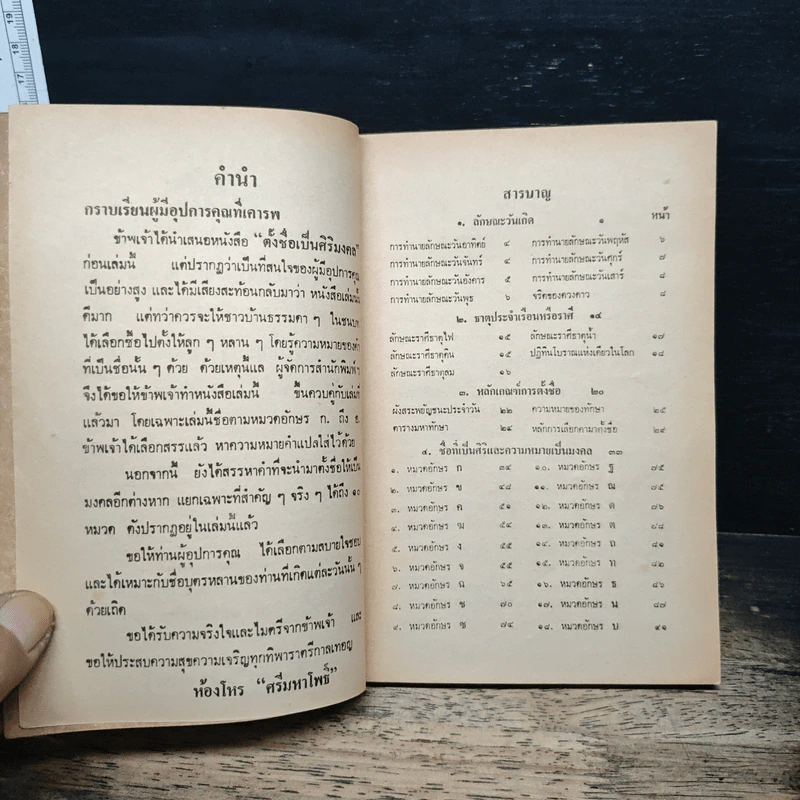 19
18
17
คำนำ
กราบเรียนผู้มีอุปการคุณที่เคารพ
ข้าพเจ้าได้นำเสนอหนังสือ “ตั้งชื่อเป็นศิริมงคล”
ก่อนเล่มนี้ แต่ปรากฏว่าเป็นที่สนใจของผู้มีอุปการะคุณ
เป็นอย่างสูง และได้มีเสียงสะท้อนกลับมาว่า หนังสือเล่มนี้
ดีมาก แต่ทว่าควรจะให้ชาวบ้านธรรมดา ๆ ในชนบท
ได้เลือกชื่อไปตั้งให้ลูก ๆ หลาน ๆ โดยรู้ความหมายของคำ
ที่เป็นชื่อนั้น ๆ ด้วย ด้วยเหตุนี้แล ผู้จัดการสำนักพิมพ์ฯ
จึงได้ขอให้ข้าพเจ้าทำหนังสือเล่มนี้ ขึ้นควบคู่กับเล่มที่
แล้วมา โดยเฉพาะเล่มนี้ชื่อตามหมวดอักษร ก. ถึง อ.
ข้าพเจ้าได้เลือกสรรแล้ว หาความหมายคำแปลใส่ไว้ด้วย
นอกจากนี้ ยังได้สรรหาคำที่จะนำมาตั้งชื่อให้เป็น
มงคลอีกต่างหาก แยกเฉพาะที่สำคัญ ๆ จริง ๆ ได้ถึง ๑๐
หมวด ดังปรากฏอยู่ในเล่มนี้แล้ว
ขอให้ท่านผู้อุปการคุณ ได้เลือกตามสบายใจชอบ
และได้เหมาะกับชื่อบุตรหลานของท่านที่เกิดแต่ละวันนั้น ๆ
ด้วยเถิด
ขอได้รับความจริงใจและไมตรีจากข้าพเจ้า และ
ขอให้ประสบความสุขความเจริญทุกทิพาราตรีกาลเทอญ
ห้องโหร “ศรีมหาโพธิ์”
สารบาญ
๑. ลักษณะวันเกิด ๑ หน้า
การทำนายลักษณะวันอาทิตย์ ๔ การทำนายลักษณะวันพฤหัส ๖
การทำนายลักษณะวันจันทร์ ๔ การทำนายลักษณะวันศุกร์ ๗
การทำนายลักษณะวันอังคาร ๕ การทำนายลักษณะวันเสาร์ ๘
การทำนายลักษณะวันพุธ ๖ จริตของดวงดาว ๘
๒. ธาตุประจำเรือนหรือราศี ๑๔
ลักษณะราศีธาตุไฟ ๑๕ ลักษณะราศีธาตุน้ำ ๑๗
ลักษณะราศีธาตุดิน ๑๕ ปฏิทินโบราณแห่งเดียวในโลก ๑๘
ลักษณะราศีธาตุลม ๑๖
๓. หลักเกณฑ์การตั้งชื่อ ๒๐
ผังสระพยัญชนะประจำวัน ๒๒ ความหมายของทักษา ๒๕
ตารางมหาทักษา ๒๔ หลักการเลือกคำมาตั้งชื่อ ๒๙
๔. ชื่อที่เป็นศิริและความหมายเป็นมงคล ๓๓
๑. หมวดอักษร ก ๓๔ ๑๐. หมวดอักษร ฐ ๗๕
๒. หมวดอักษร ข ๔๘ ๑๑. หมวดอักษร ณ ๗๕
๓. หมวดอักษร ค ๕๑ ๑๒. หมวดอักษร ด ๗๖
๔. หมวดอักษร ฆ ๕๔ ๑๓. หมวดอักษร ต ๗๘
๕. หมวดอักษร ง ๕๕ ๑๔. หมวดอักษร ถ ๘๑
๖. หมวดอักษร จ ๕๕ ๑๕. หมวดอักษร ท ๘๒
๗. หมวดอักษร ฉ ๖๕ ๑๖. หมวดอักษร ธ ๘๖
๘. หมวดอักษร ช ๗๐ ๑๗. หมวดอักษร น ๘๗
๙. หมวดอักษร ซ ๗๔ ๑๘. หมวดอักษร บ ๙๑